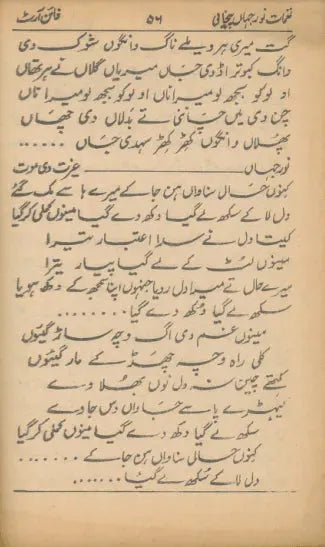 نغمات نور جہاں پنجابی ۵۶ فائن آرٹ
گت میری ہر ویلے ناگ وانگوں شوک دی
وانگ کبوتر اڈدی جاں میریاں گلاں نے ہر تھاں
او لوکو سمجھ لو میرا ناں او لوکو سمجھ لو میرا ناں
چن دی میں چاننی تے بدلاں دی چھاں
پھلاں وانگوں کھڑ کھڑ سہدی جاں ......
نور جہاں ــــــــــ عزت دی موت
کنوں حال سناواں ہن جا کے میرے ہاسے مک گئے
دل لا کے سکھ لے گیا دکھ دے گیا مینوں کملی کر گیا
کیتا دل نے سدا اعتبار تیرا
مینوں لٹ کے لے گیا پیار تیرا
میرے حال تے میرا دل ردیا جنہوں اپنا سمجھ کے دکھ ہویا
سکھ لے گیا دکھ دے گیا ........
مینوں غم دی اگ وچہ ساڑ گئیوں
کلی راہ وچہ چھڑ کے مار گئیوں
کتے چین نہ دل نوں بھلا وے
کیہڑے پاسے جاواں دس جا وے
سکھ لے گیا دکھ دے گیا مینوں کملی کر گیا
کنوں حال سناواں ہن جا کے .......
دل لا کے سکھ لے گیا ......